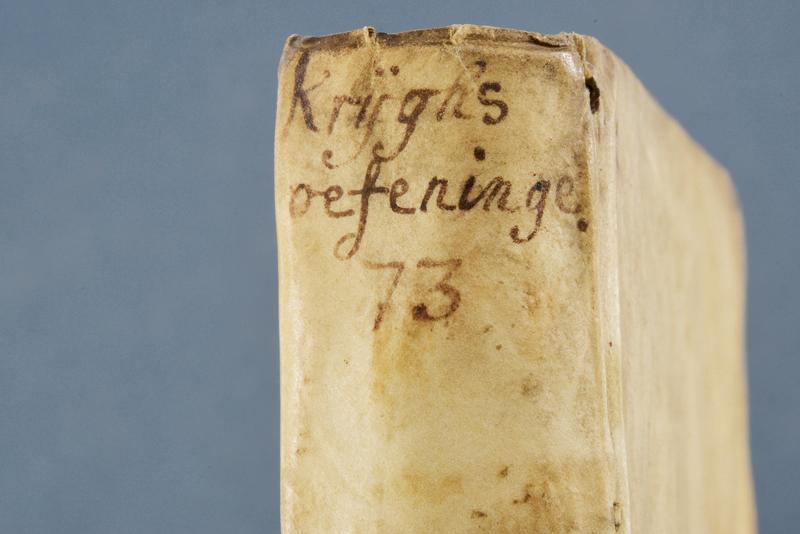 Krÿgh's
oefeninge.
73